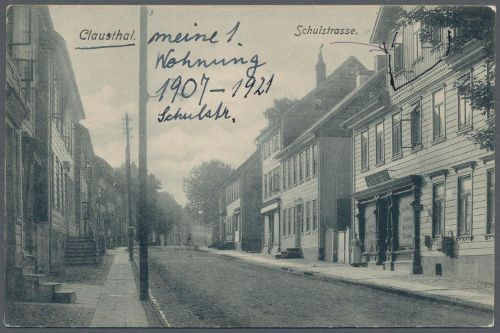 Clausthal.
Schulstrasse.
meine 1.
Wohnung
1907-1921
Schulstr.